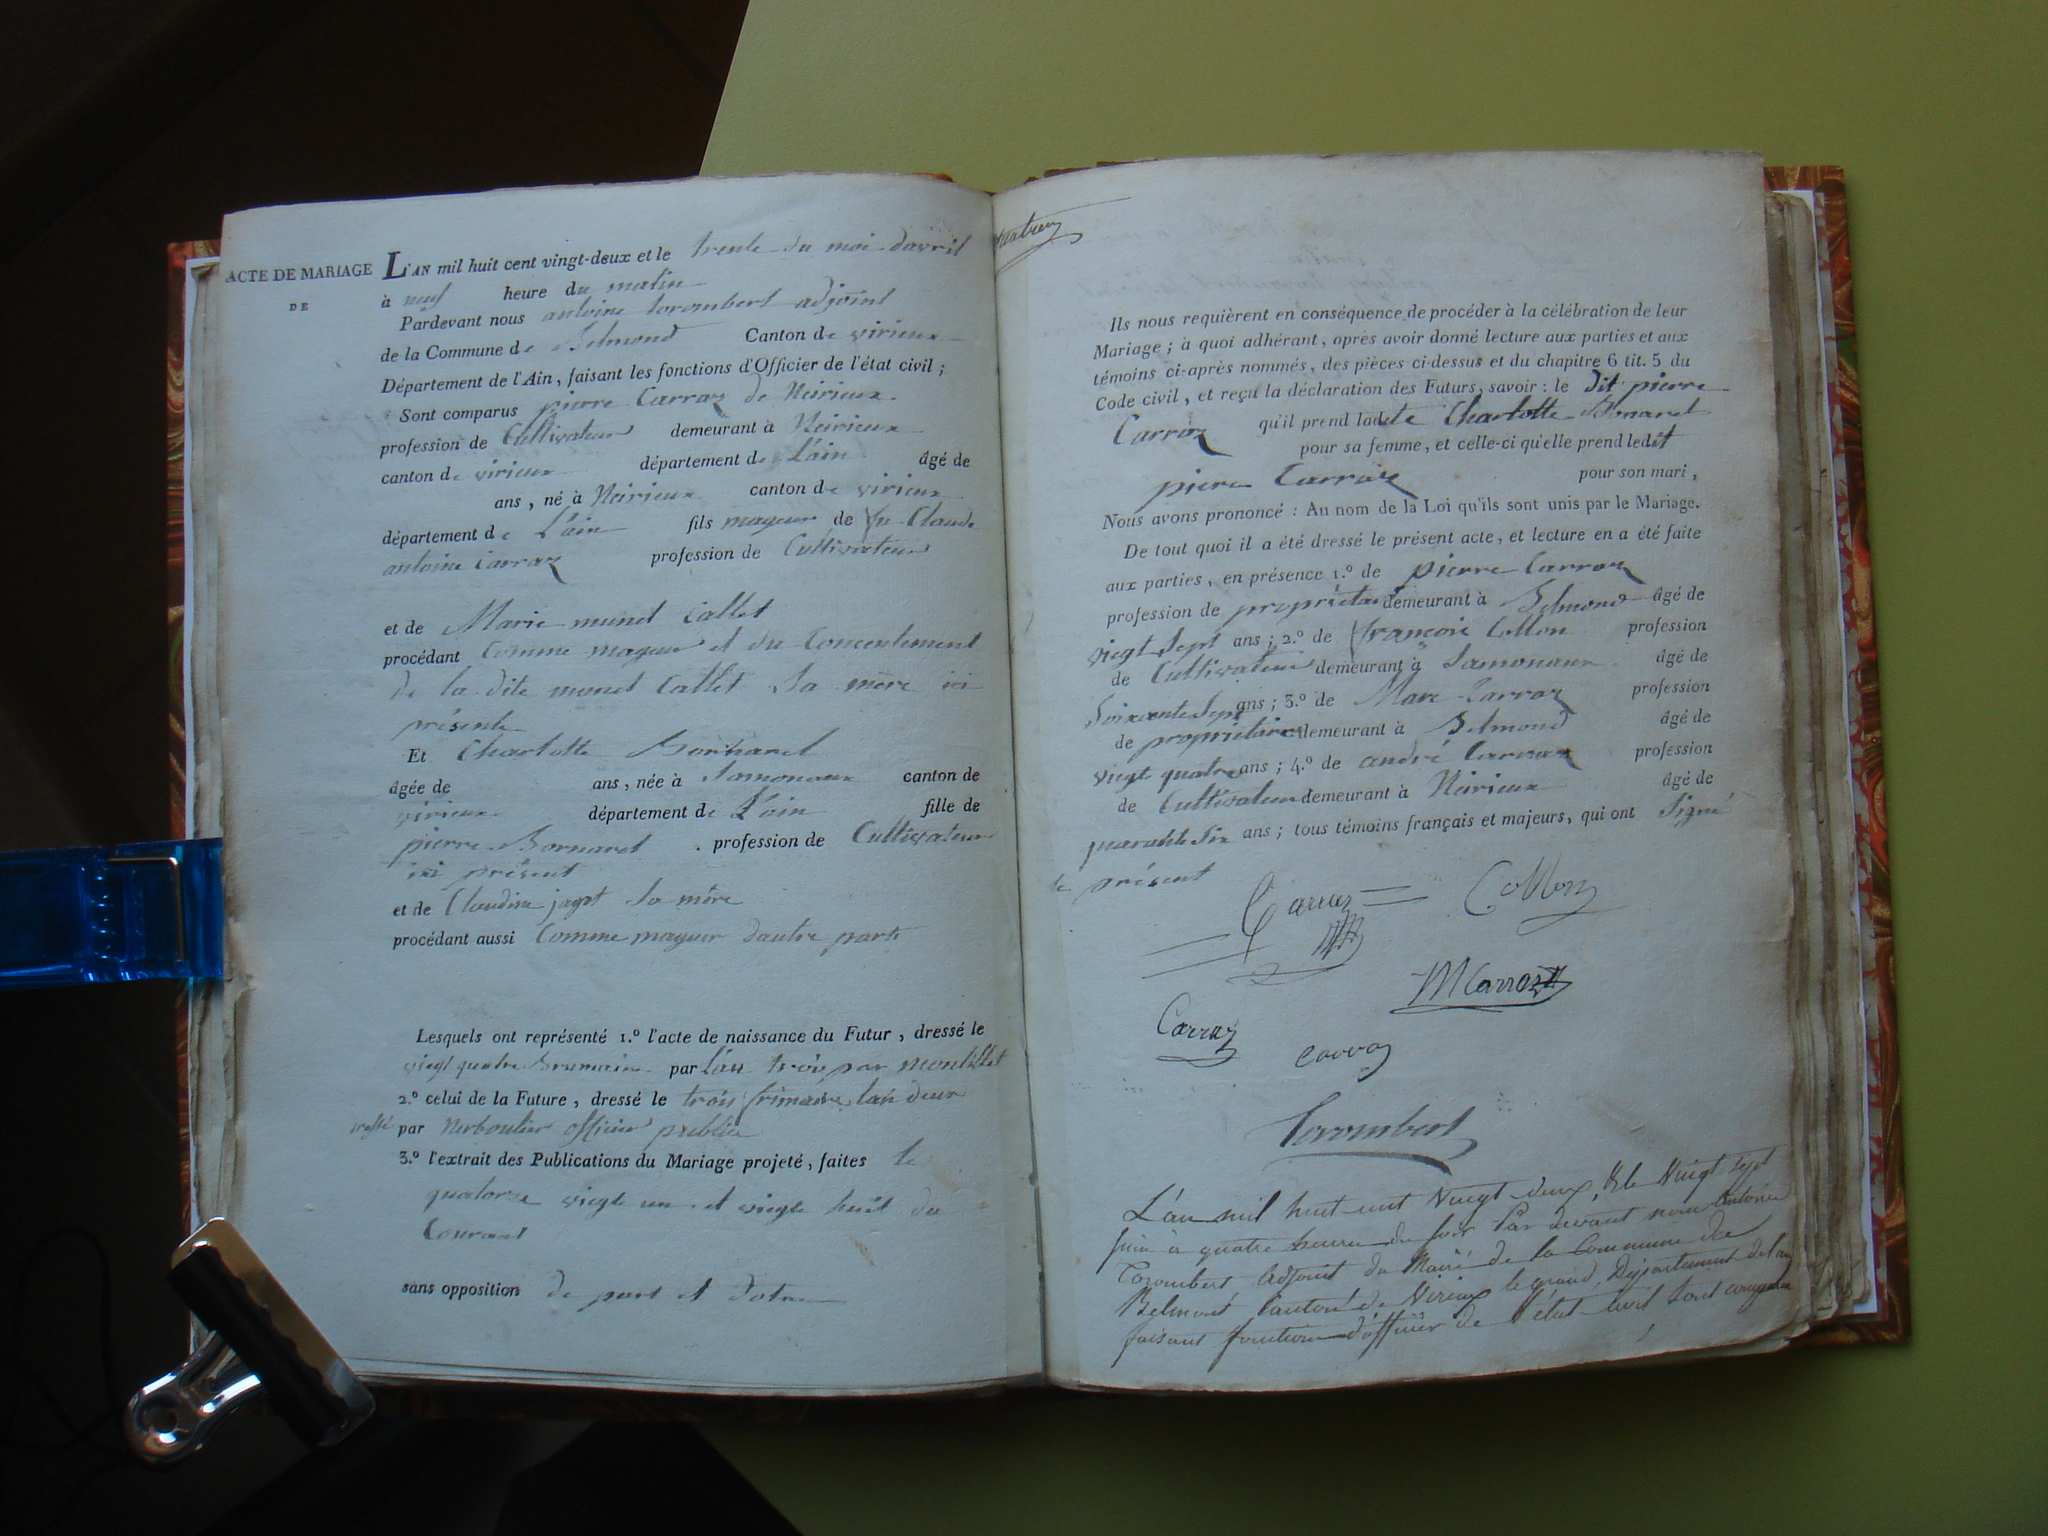 ACTE DE MARIAGE
DE
L'AN mil huit cent vingt-deux et le trente du moi davril
à neuf heure du matin
Pardevant nous antoine torombert adjoint
de la Commune de Belmond Canton de virieux
Département de l'Ain, faisant les fonctions d'Officier de l'état civil ;
Sont comparus pierre Carraz de Neirieux
profession de Cultivateur demeurant à Neirieux
canton de virieux département de L'ain âgé de
ans, né à Neirieux canton de virieux
département de L'ain fils mageur de fu Claude
antoine Carraz profession de Cultivateur
et de Marie munet Callet
procédant Comme mageur et du Concentement
de la dite munet Callet Sa mère ici
présente
Et Charlotte Bornaret
âgée de ans, née à Samonaux canton de
virieux département de L'ain fille de
pierre Bornaret profession de Cultivateur
ici présent
et de Claudine jagot Sa mère
procédant aussi Comme mageur dautre parte
Lesquels ont représenté 1.º l'acte de naissance du Futur, dressé le
vingt quatre Brumaire par l'an trois par montillet
2.º celui de la Future, dressé le trois frimaire lan deux
par officier publice
3.º l'extrait des Publications du Mariage projeté, faites le
quatorze vingte un et vingte huit du
Courant
sans opposition de part et dotre
Ils nous requièrent en conséquence de procéder à la célébration de leur
Mariage ; à quoi adhérant, après avoir donné lecture aux parties et aux
témoins ci-après nommés, des pièces ci-dessus et du chapitre 6 tit. 5 du
Code civil, et reçu la déclaration des Futurs, savoir : le dit pierre
Carraz qu'il prend ladite Charlotte Bornaret
pour sa femme, et celle-ci qu'elle prend ledit
pierre Carraz pour son mari,
Nous avons prononcé : Au nom de la Loi qu'ils sont unis par le Mariage.
De tout quoi il a été dressé le présent acte, et lecture en a été faite
aux parties, en présence 1.º de pierre Carraz
profession de propriétai demeurant à Belmond âgé de
vingt Sept ans ; 2.º de françois Collon profession
de Cultivateur demeurant à Samonaux âgé de
Soixante Sept ans ; 3.º de Marc Carraz profession
de propriétaire demeurant à Belmond âgé de
vingt quatre ans ; 4.º de andré Carraz profession
de Cultivateur demeurant à Neirieux âgé de
quarante Six ans ; tous témoins français et majeurs, qui ont Signé
le présent
Carraz Collon
M Carraz
Carraz
carraz
Torombert
L'an mil huit cent Vingt-deux, & le Vingt sept
juin à quatre heures du soir Par devant nous Antoine
Torombert Adjoint du Maire de la Commune de
Belmont Canton de Virieux le grand, Département de lain
faisant fonction d'officier de l'état civil sont comparu